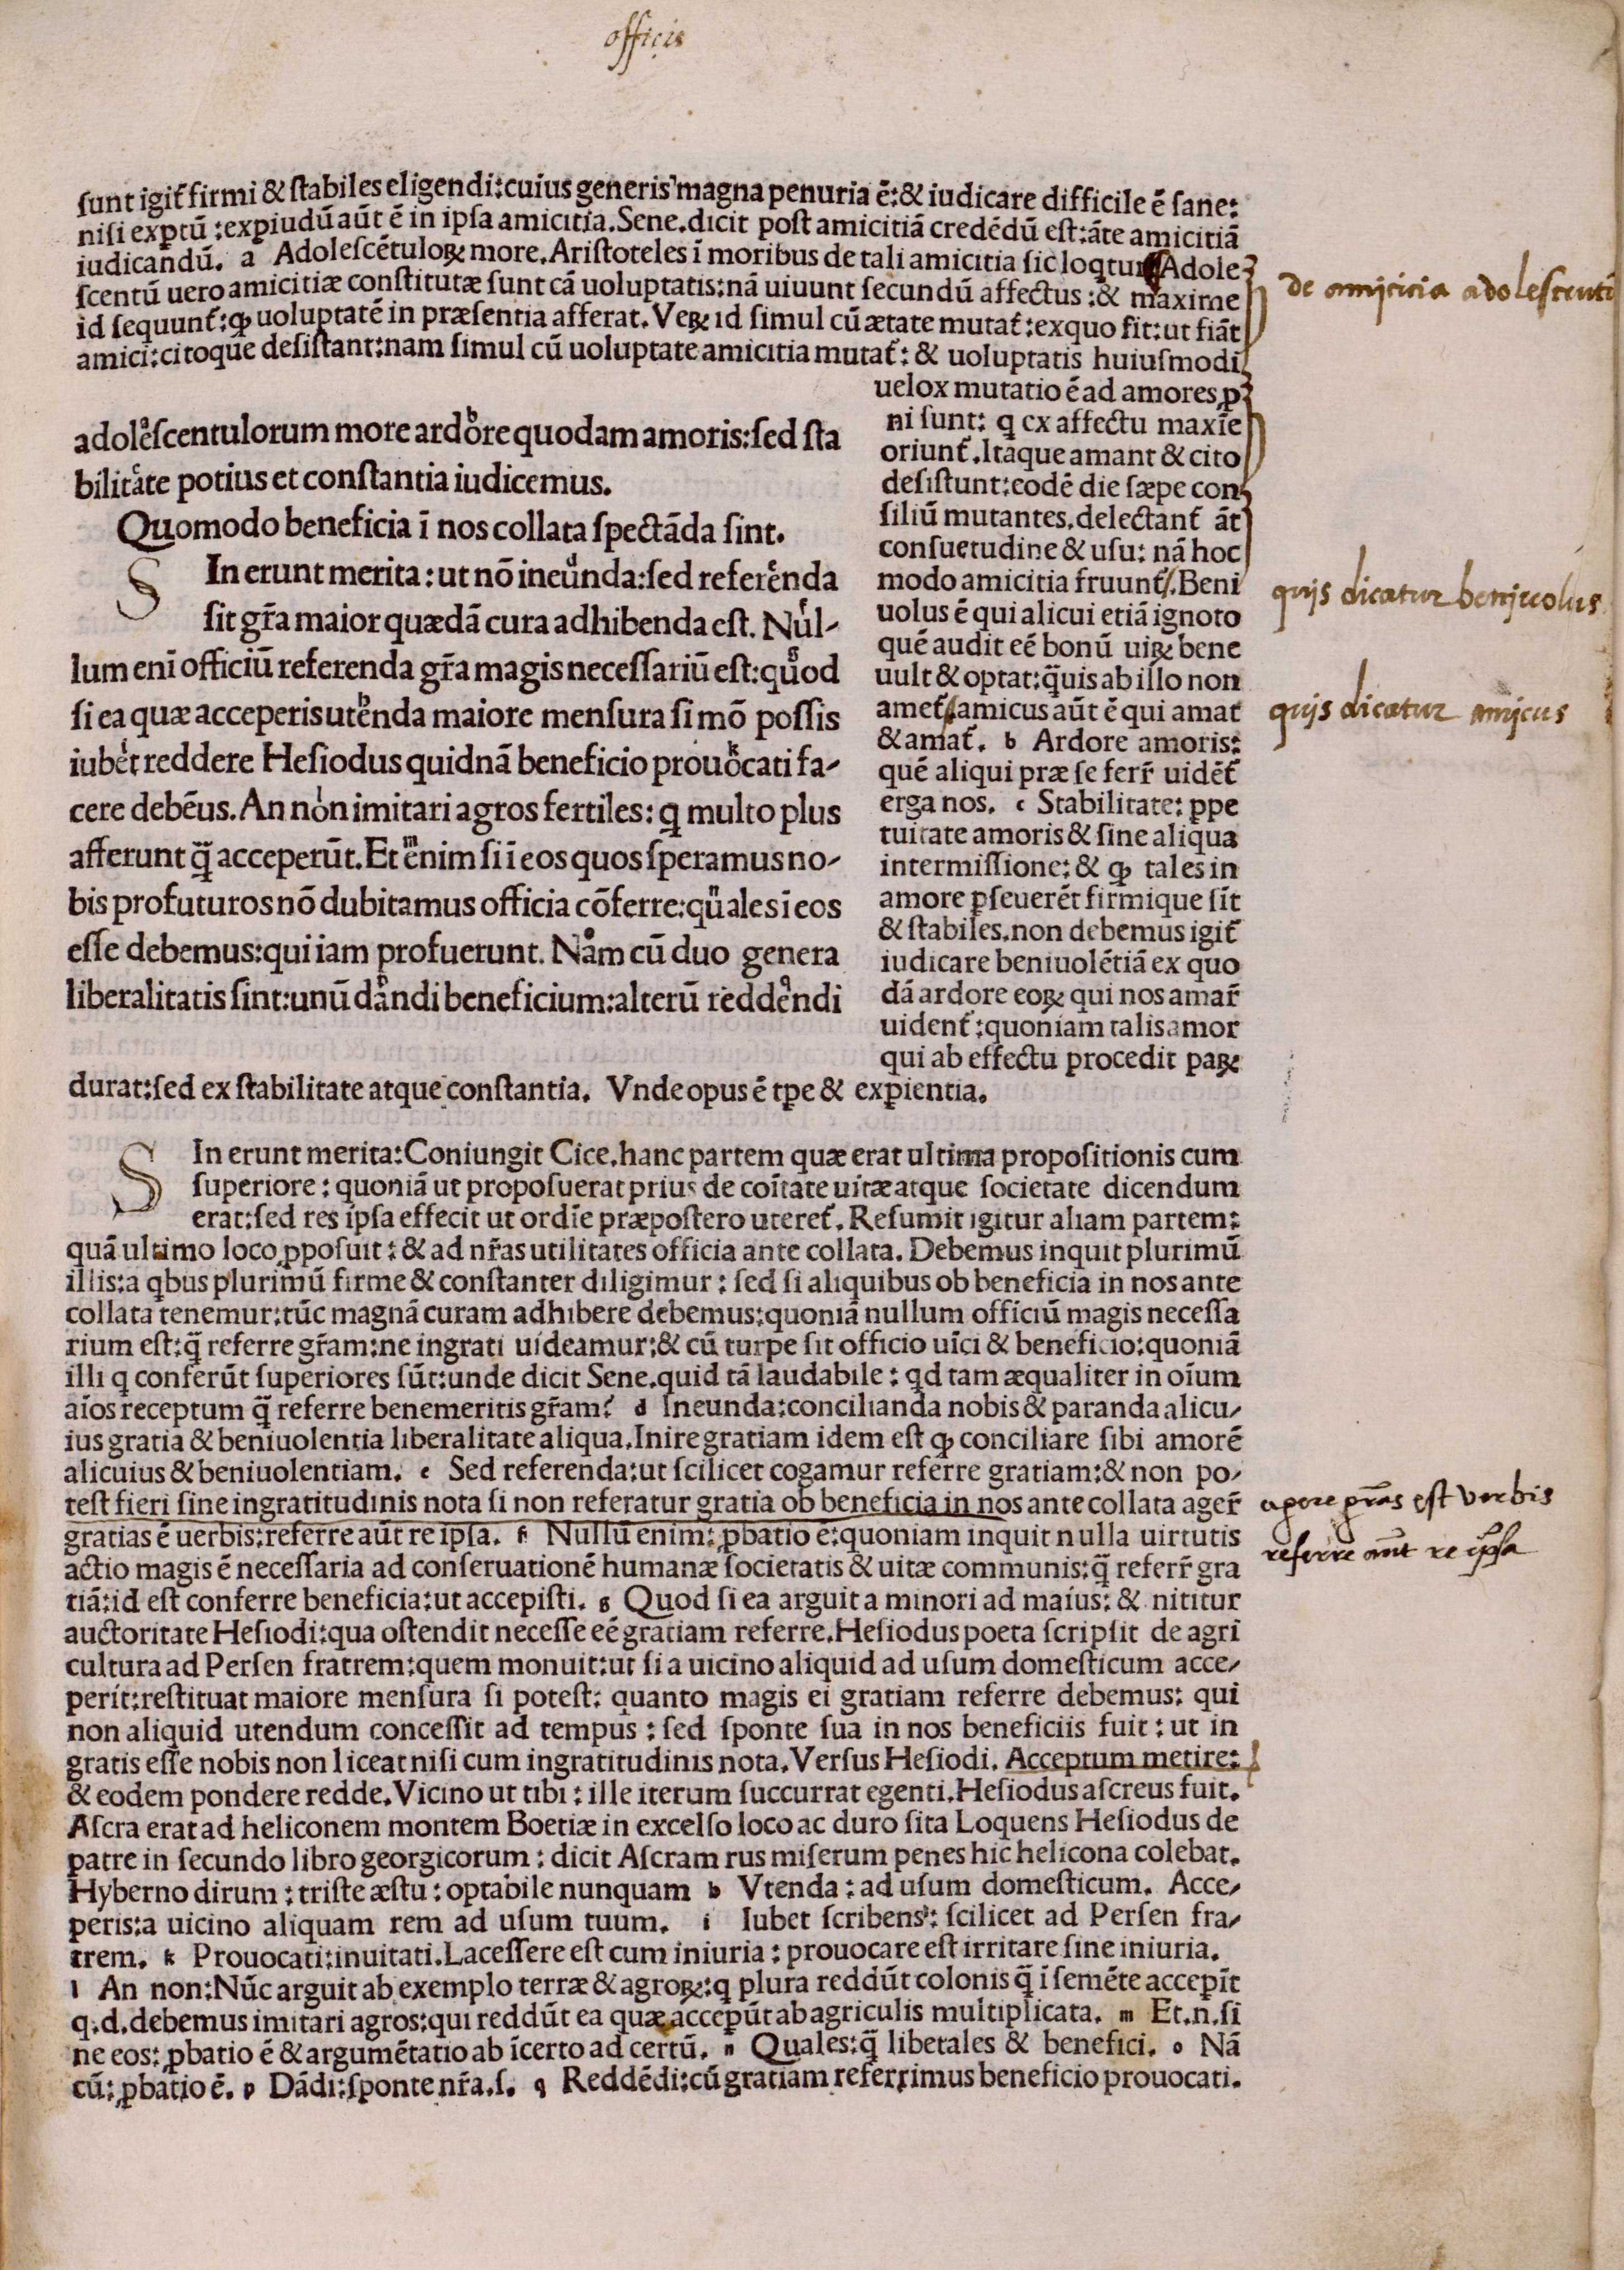 officis
ſunt igit᷑ firmi & ſtabiles eligendi:cuius generis magna penuria ē:& iudicare difficile ē ſane:
niſi exꝑtū:exꝑiudū aūt ē in ipſa amicitia.Sene.dicit poſt amicitiā credēdū eſt:āte amicitiā
iudicandū. a Adoleſcētuloꝝ more.Ariſtoteles ī moribus de tali amicitia ſic loqtur Adole
ſcentū uero amicitiæ conſtitutæ ſunt cā uoluptatis:nā uiuunt ſecundū affectus:& maxime
id ſequunt᷑:ꝙ uoluptatē in præſentia afferat.Veꝝ id ſimul cū ætate mutat᷑:exquo fit:ut fiāt
amici:citoque deſiſtant:nam ſimul cū uoluptate amicitia mutat᷑:& uoluptatis huiuſmodi
de amicicia adolescenti
uelox mutatio ē ad amores ꝓ
ni ſunt: q cx affectu maxīe
oriunt᷑.Itaque amant & cito
deſiſtunt:eodē die ſæpe con
ſiliū mutantes.delectant᷑ āt
conſuetudine & uſu: nā hoc
modo amicitia fruunt᷑.Beni
uolus ē qui alicui etiā ignoto
quē audit eē bonū uiꝝ bene
uult & optat:q̄uis ab illo non
amet᷑ amicus aūt ē qui amat
& amat᷑. b Ardore amoris:
quē aliqui præ ſe ferr̄ uidēt᷑
erga nos. c Stabilitate: ꝑpe
tuitate amoris & ſine aliqua
intermiſſione:& ꝙ tales in
amore ꝑſeuerēt firmique ſīt
& ſtabiles.non debemus igit᷑
iudicare beniuolētiā ex quo
dā ardore eoꝝ qui nos amar̄
uident᷑:quoniam talis amor
qui ab effectu procedit paꝝ
quis dicatur beniuolus
quis dicatur amicus
adoleſcentulorum more ardore quodam amoris:ſed ſta
bilitate potius et conſtantia iudicemus.
Quomodo beneficia ī nos collata ſpectāda ſint.
S In erunt merita:ut nō ineunda:ſed referenda
ſit gr̄a maior quædā cura adhibenda eſt. Nul-
lum enī officiū referenda gr̄a magis neceſſariū eſt:quod
ſi ea quæ acceperis utenda maiore menſura ſi mō poſſis
iubet reddere Heſiodus quidnā beneficio prouocati fa-
cere debēus.An non imitari agros fertiles: q multo plus
afferunt q̄ acceperūt.Et enim ſi ī eos quos ſperamus no-
bis profuturos nō dubitamus officia cōferre:quales ī eos
eſſe debemus:qui iam profuerunt. Nam cū duo genera
liberalitatis ſint:unū dandi beneficium:alterū reddendi
durat:ſed ex ſtabilitate atque conſtantia. Vnde opus ē tꝑe & exꝑientia.
S In erunt merita:Coniungit Cice.hanc partem quæ erat ultima propoſitionis cum
ſuperiore: quoniā ut propoſuerat prius de coītate uitæ atque ſocietate dicendum
erat:ſed res ipſa effecit ut ordīe præpoſtero uteret᷑.Reſumit igitur aliam partem:
quā ultimo loco ꝓpoſuit:& ad nr̄as utilitates officia ante collata. Debemus inquit plurimū
illis:a qbus plurimū firme & conſtanter diligimur: ſed ſi aliquibus ob beneficia in nos ante
collata tenemur:tūc magnā curam adhibere debemus:quoniā nullum officiū magis neceſſa
rium eſt:q̄ referre gr̄am:ne ingrati uideamur:& cū turpe ſit officio uīci & beneficio:quoniā
illi q conferūt ſuperiores ſūt:unde dicit Sene.quid tā laudabile: qd tam æqualiter in oīum
aīos receptum q̄ referre benemeritis gr̄am? d Ineunda:concilianda nobis & paranda alicu-
ius gratia & beniuolentia liberalitate aliqua.Inire gratiam idem eſt ꝙ conciliare ſibi amorē
alicuius & beniuolentiam. e Sed referenda:ut ſcilicet cogamur referre gratiam:& non po-
teſt fieri ſine ingratitudinis nota ſi non referatur gratia ob beneficia in nos ante collata ager̄
gratias ē uerbis:referre aūt re ipſa. f Nullū enim: ꝓbatio ē:quoniam inquit nulla uirtutis
actio magis ē neceſſaria ad conſeruationē humanæ ſocietatis & uitæ communis:q̄ referr̄ gra
tiā:id eſt conferre beneficia:ut accepiſti. g Quod ſi ea arguit a minori ad maius: & nititur
auctoritate Heſiodi:qua oſtendit neceſſe eē gratiam referre.Heſiodus poeta ſcripſit de agri
cultura ad Perſen fratrem:quem monuit:ut ſi a uicino aliquid ad uſum domeſticum acce-
perit:reſtituat maiore menſura ſi poteſt: quanto magis ei gratiam referre debemus: qui
non aliquid utendum conceſſit ad tempus: ſed ſponte ſua in nos beneficiis fuit: ut in
gratis eſſe nobis non liceat niſi cum ingratitudinis nota.Verſus Heſiodi. Acceptum metire:
& eodem pondere redde.Vicino ut tibi: ille iterum ſuccurrat egenti.Heſiodus aſcreus fuit.
Aſcra erat ad heliconem montem Boetiæ in excelſo loco ac duro ſita Loquens Heſiodus de
patre in ſecundo libro georgicorum: dicit Aſcram rus miſerum penes hic helicona colebat.
Hyberno dirum: triſte æſtu: optabile nunquam h Vtenda: ad uſum domeſticum. Acce-
peris:a uicino aliquam rem ad uſum tuum. i Iubet ſcribens: ſcilicet ad Perſen fra-
trem. k Prouocati:inuitati.Laceſſere eſt cum iniuria: prouocare eſt irritare ſine iniuria.
l An non:Nūc arguit ab exemplo terræ & agroꝝ:q plura reddūt colonis q̄ ī ſemēte acceꝑīt
q.d.debemus imitari agros:qui reddūt ea quæ acceꝑūt ab agriculis multiplicata. m Et.n.ſi
ne eos: ꝓbatio ē & argumētatio ab īcerto ad certū. n Quales:q̄ liberales & benefici. o Nā
cū: ꝓbatio ē. p Dādi:ſponte nr̄a.ſ. q Reddēdi:cū gratiam referrimus beneficio prouocati.
agere gr̄as est verbis
referre aut̄ re ip̄sa